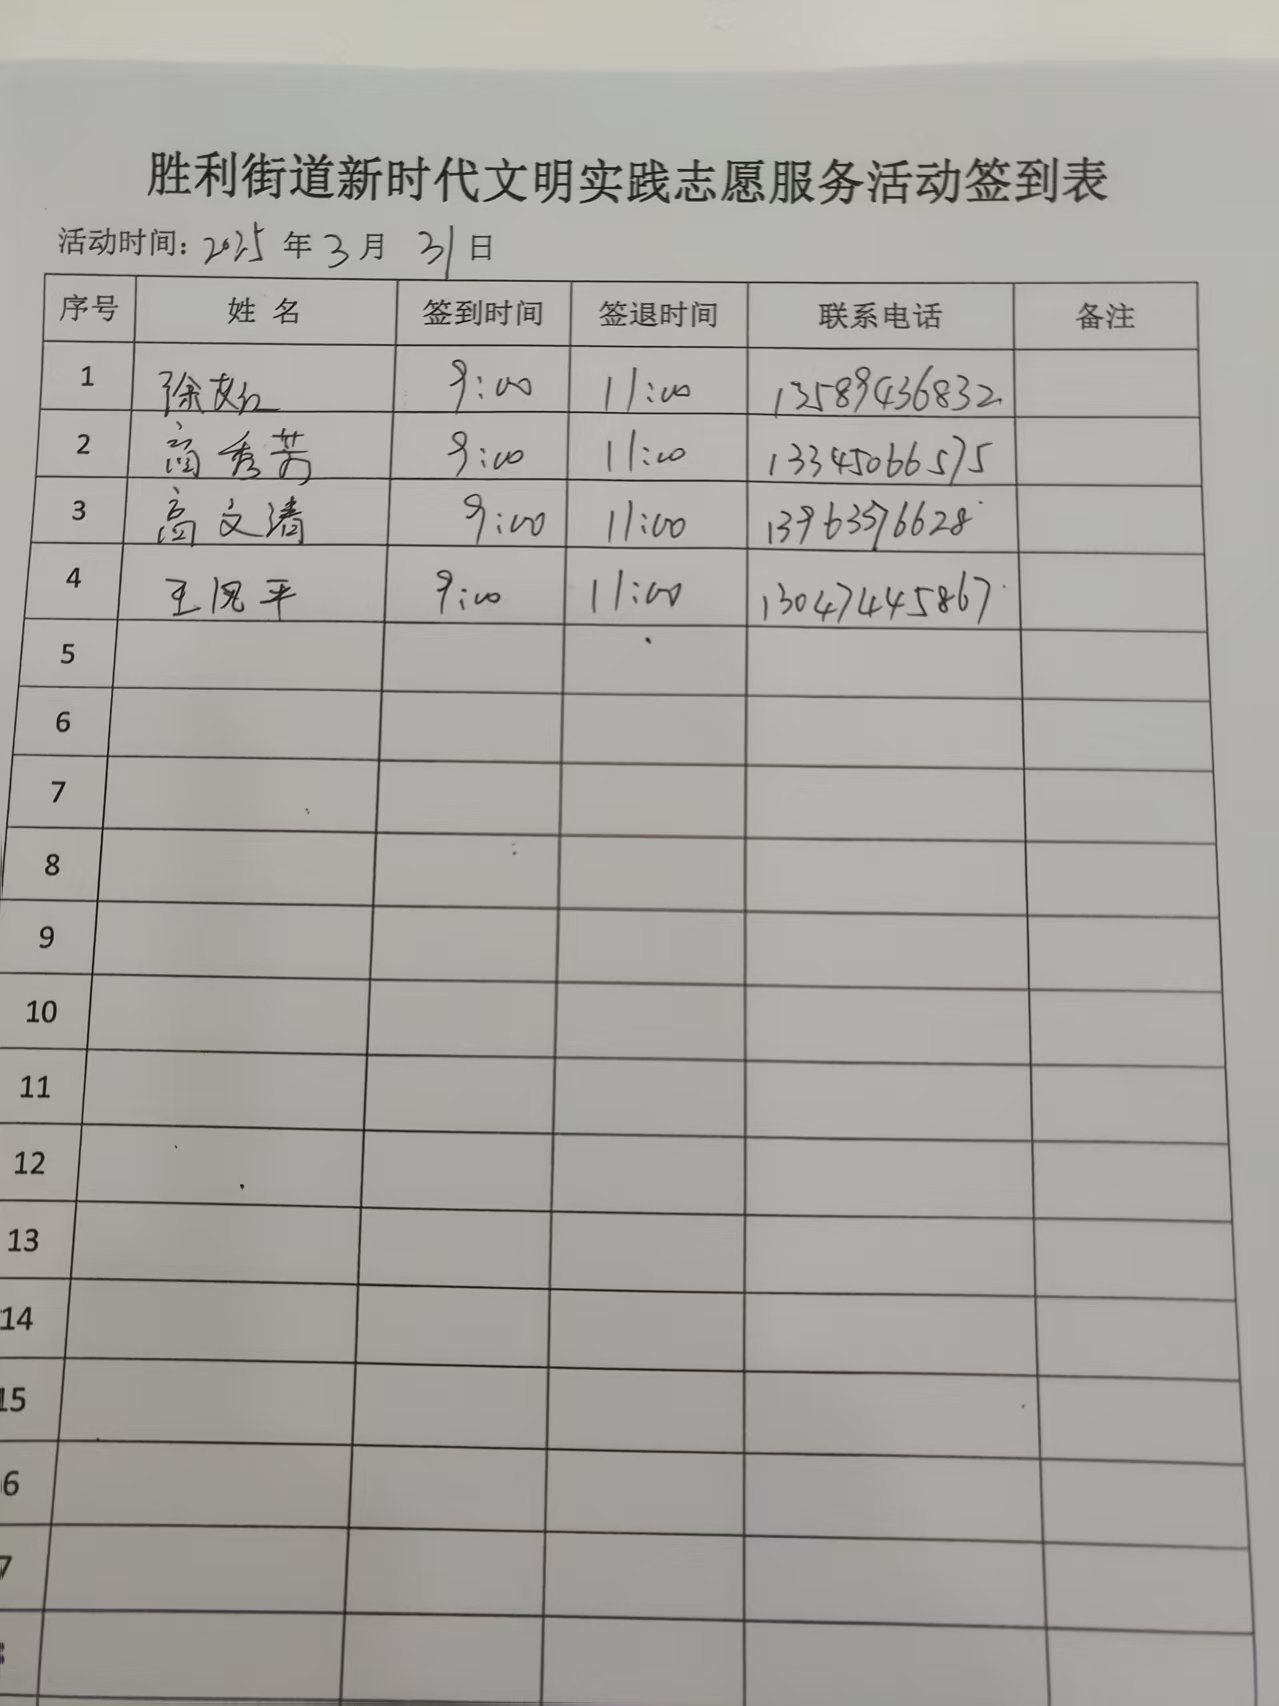 胜利街道新时代文明实践志愿服务活动签到表
活动时间: 2025 年 3 月 31 日
序号 姓 名 签到时间 签退时间 联系电话 备注
1 徐 9:00 11:00 13589436832
2 高秀芳 9:00 11:00 13345066575
3 高文清 9:00 11:00 13963576628
4 王凤平 9:00 11:00 13047445867
5
6
7
8
9
10
11
12
13
14
15
6
7